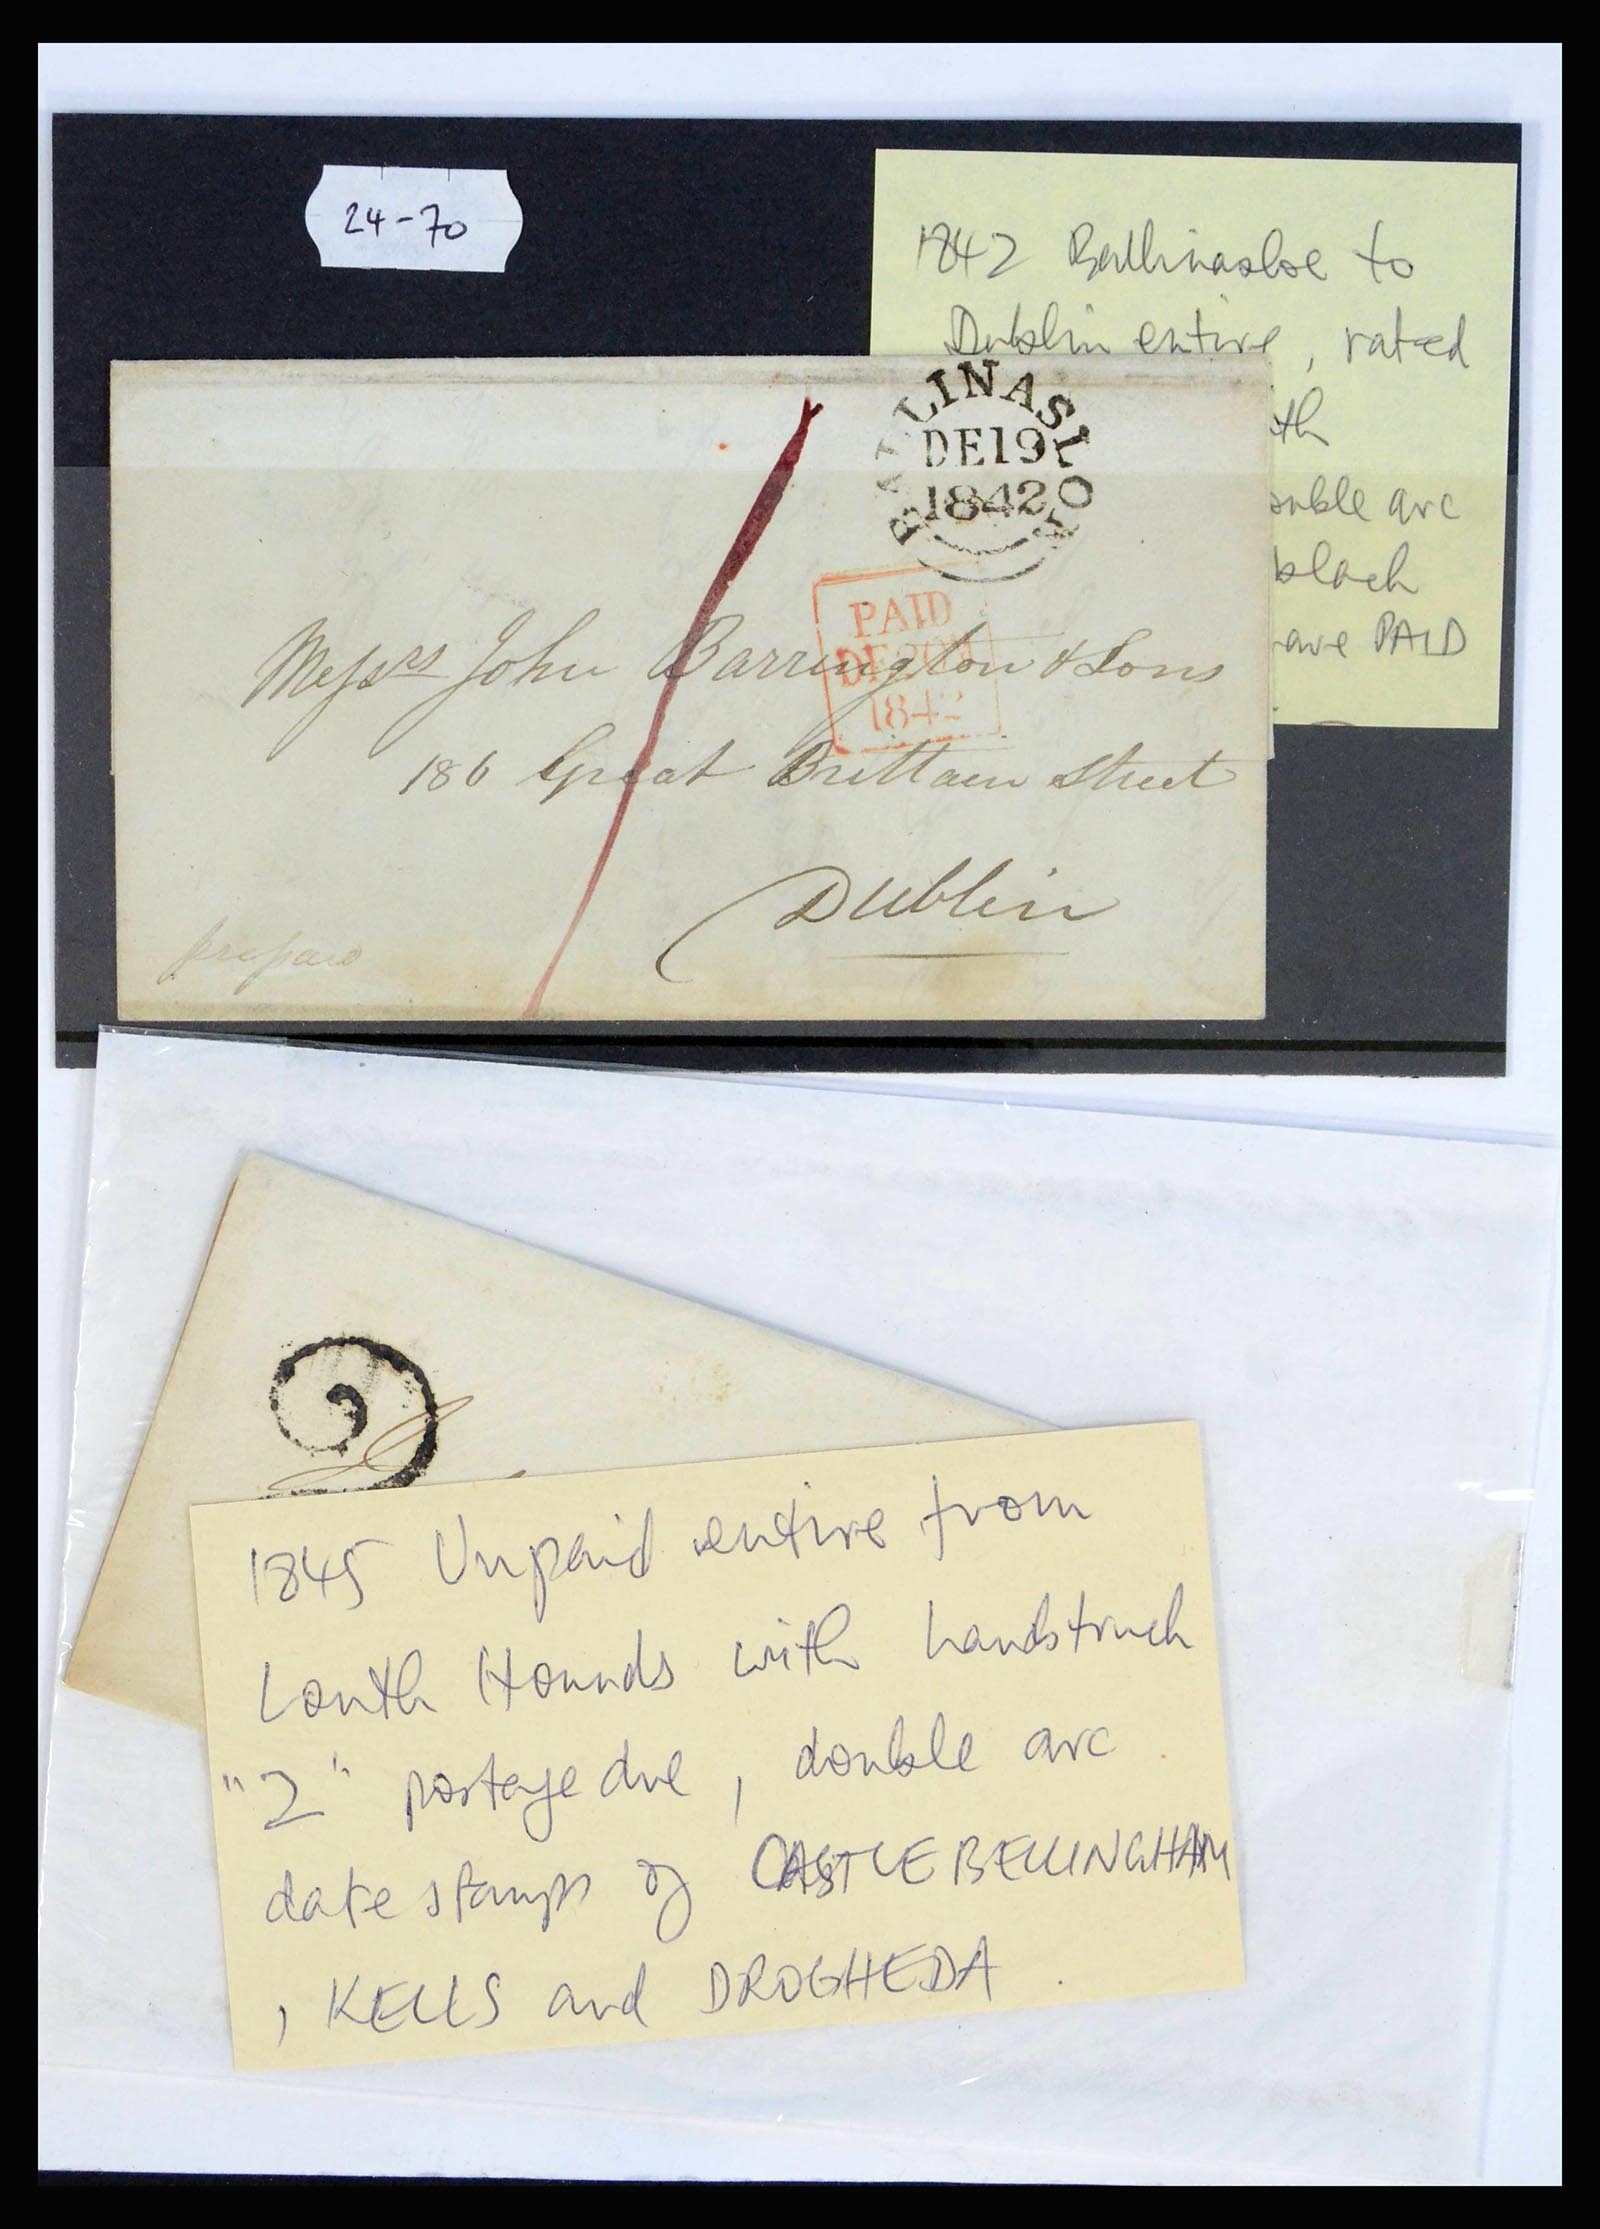 24-70
1842 Ballinasloe to
Dublin entire, rated
th
ouble arc
black
uare PAID
BALLINASLOE
DE19
1842
PAID
DE20
1842
Messrs John Barrington & Sons
186 Great Brittain Street
Dublin
prepaid
2
1845 Unpaid entire from
Louth Hounds with handstruck
"2" postage due, double arc
date stamps of CASTLEBELLINGHAM
, KELLS and DROGHEDA.